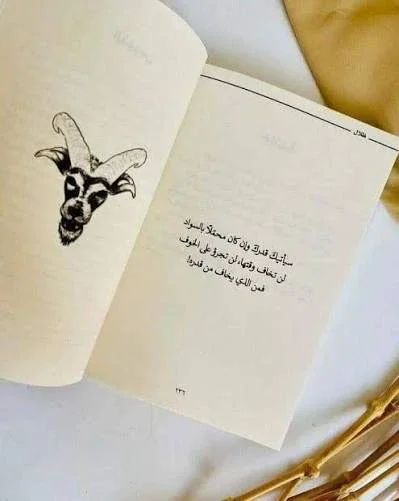 ظلال
سيأتيك قدرك وإن كان محمّلًا بالسواد
لن تخاف وقتها، لن تجرؤ على الخوف
فمن الذي يخاف من قدره!
٢٣٦